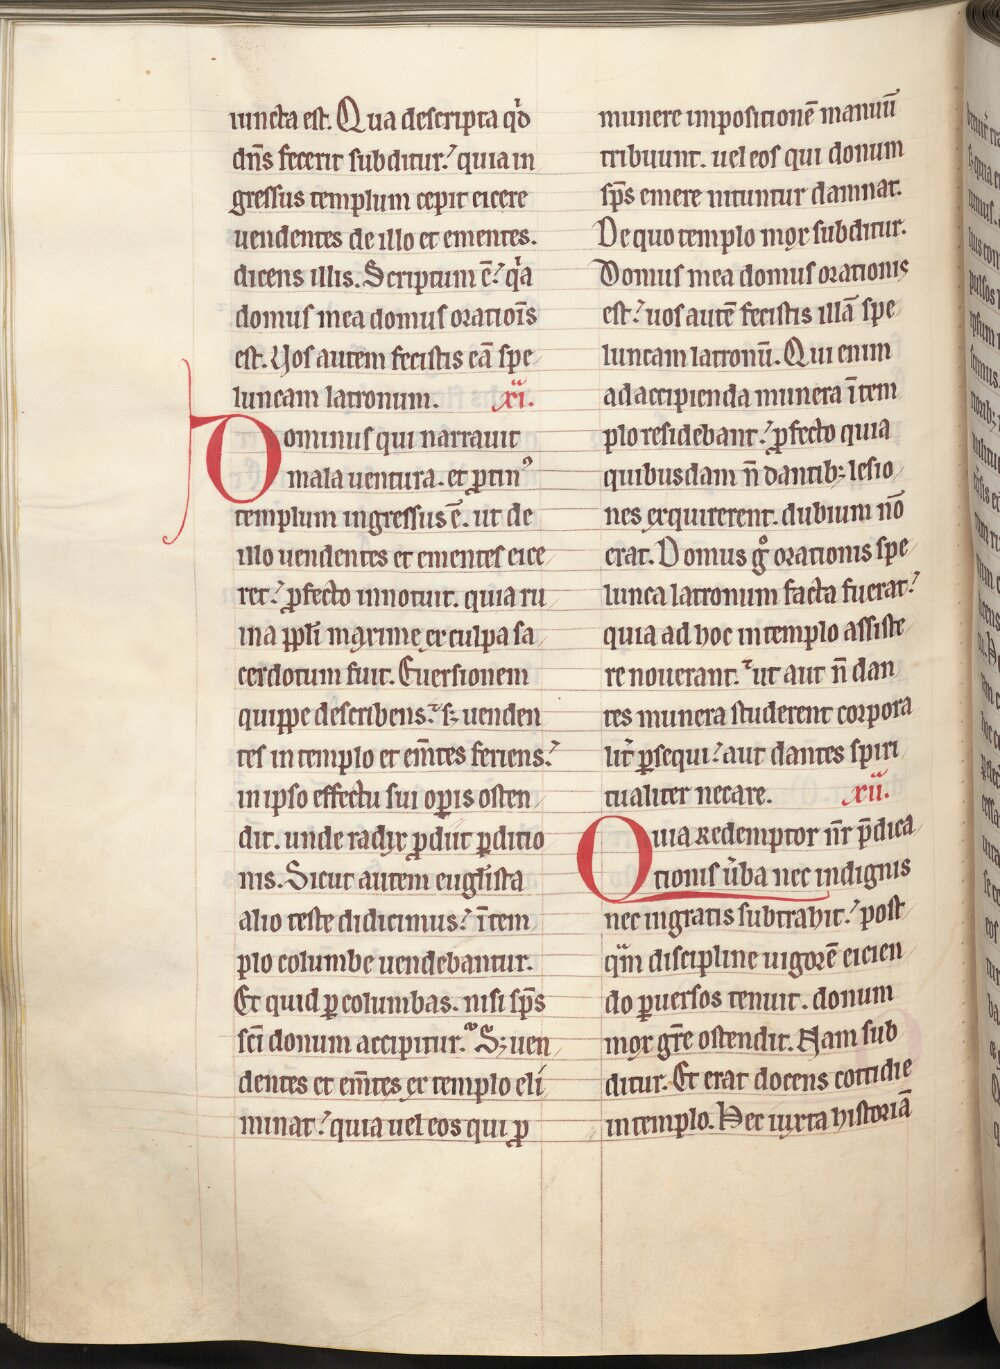 iuncta est. Qua descripta qͥd
dn̄s fecerit subditur.ˀ quia in
gressus templum cepit eicere
uendentes de illo et ementes.
dicens illis. Scriptum ē.ˀ qͥa
domus mea domus oratioīs
est. Vos autem fecistis eā spe
luncam latronum. xi.
Dominus qui narrauit
mala uentura. et ꝓtinꝰ
templum ingressus ē. ut de
illo uendentes et ementes eice
ret.ˀ ꝓfecto innotuit. quia ru
ina pp̄li maxime ex culpa sa
cerdotum fuit. Euersionem
quippe describens.ˀ sꝫ uenden
tes in templo et em̄tes feriens.ˀ
in ipso effectu sui oꝑis osten
dit. unde radix ꝓdiit ꝑditio
nis. Sicut autem eugl̄ista
alio teste didicimus.ˀ ī tem
plo columbe uendebantur.
Et quid ꝑ columbas. nisi sp̄s
sc̄i donum accipitur.ˀ Sꝫ uen
dentes et em̄tes ex templo eli
minat.ˀ quia uel eos qui ꝓ
munere impositionē manuū
tribuunt. uel eos qui donum
sp̄s emere nituntur damnat.
De quo templo mox subditur.
Domus mea domus orationis
est.ˀ uos autē fecistis illā spe
luncam latronū. Qui enim
ad accipienda munera ī tem
plo residebant.ˀ ꝓfecto quia
quibusdam n̄ dantibꝫ lesio
nes exquirerent. dubium nō
erat. Domus gͦ orationis spe
lunca latronum facta fuerat.ˀ
quia ad hoc in templo assiste
re nouerant.ˀ ut aut n̄ dan
tes munera studerent corpora
lit᷑ ꝑsequi.ˀ aut dantes spiri
tualiter necare. xii.
Quia redemptor nr̄ p̄dica
tionis u̾ba nec indignis
nec ingratis subtrahit.ˀ post
qᷓm discipline uigorē eicien
do ꝑuersos tenuit. donum
mox gr̄e ostendit. Nam sub
ditur. Et erat docens cottidie
in templo. Hec iuxta historiā